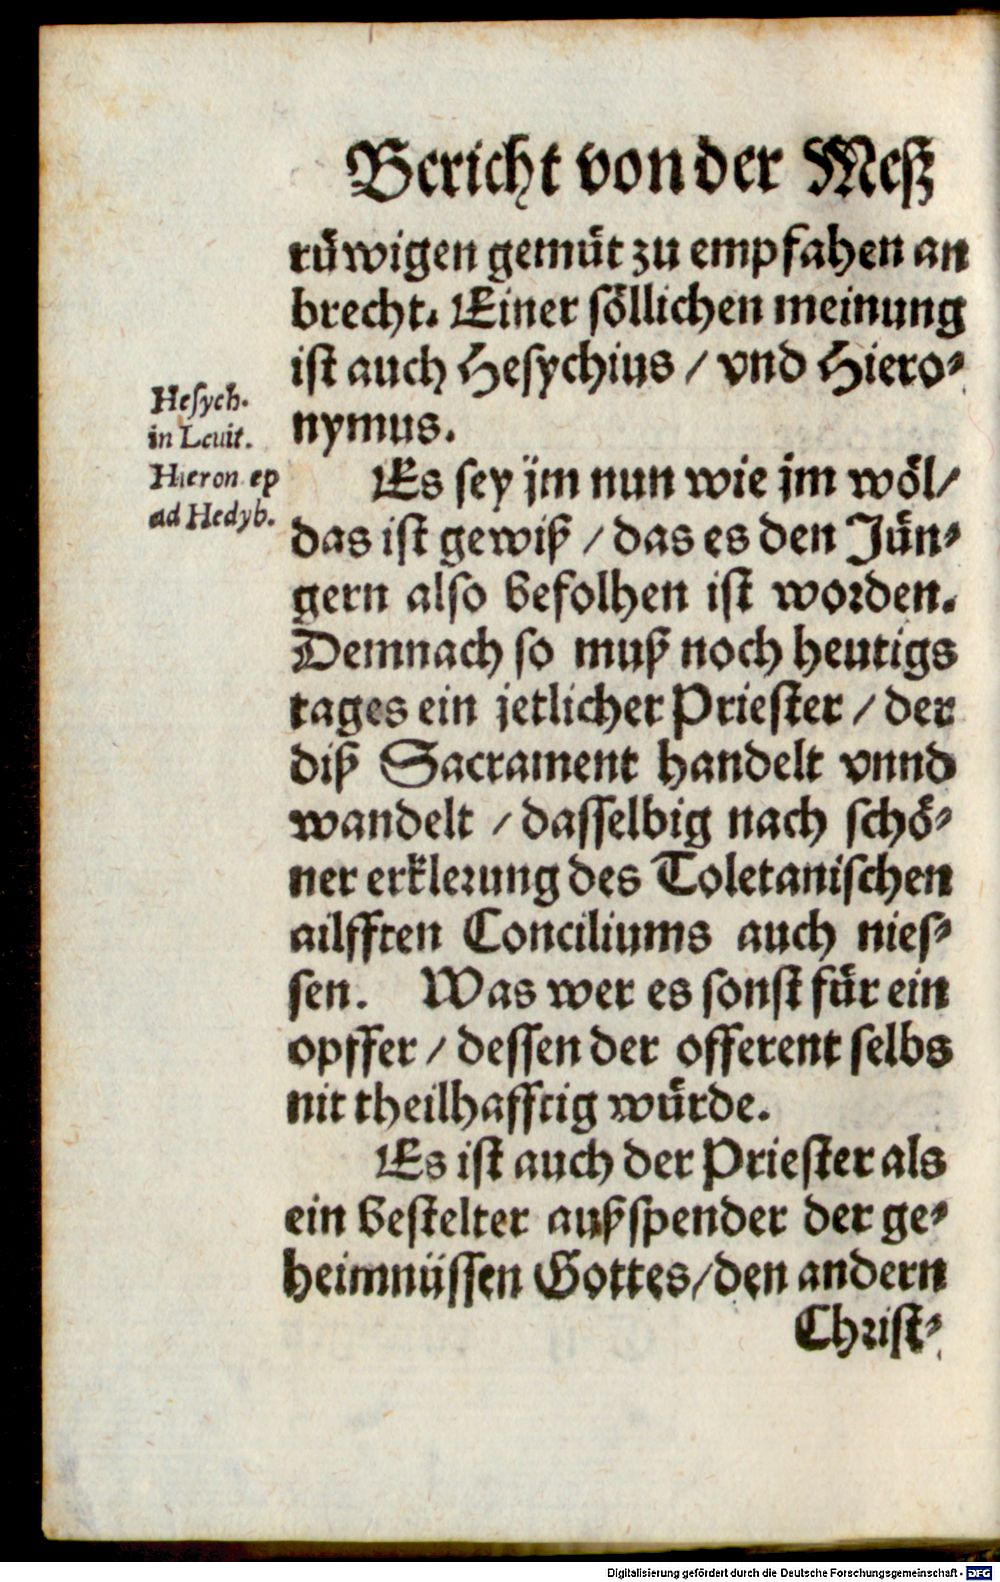 Bericht von der Meß
rüwigen gemüt zu empfahen an
brecht. Einer söllichen meinung
ist auch Hesychius / vnd Hiero-
nymus.
Hesych.
in Leuit.
Hieron ep
ad Hedyb.
Es sey jm nun wie jm wöl/
das ist gewiß / das es den Jün-
gern also befolhen ist worden.
Demnach so muß noch heutigs
tages ein jetlicher Priester / der
diß Sacrament handelt vnnd
wandelt / dasselbig nach schö-
ner erklerung des Toletanischen
ailfften Conciliums auch nies-
sen. Was wer es sonst für ein
opffer / dessen der offerent selbs
nit theilhafftig würde.
Es ist auch der Priester als
ein bestelter außspender der ge-
heimnüssen Gottes/den andern
Christ-
Digitalisierung gefördert durch die Deutsche Forschungsgemeinschaft - DFG